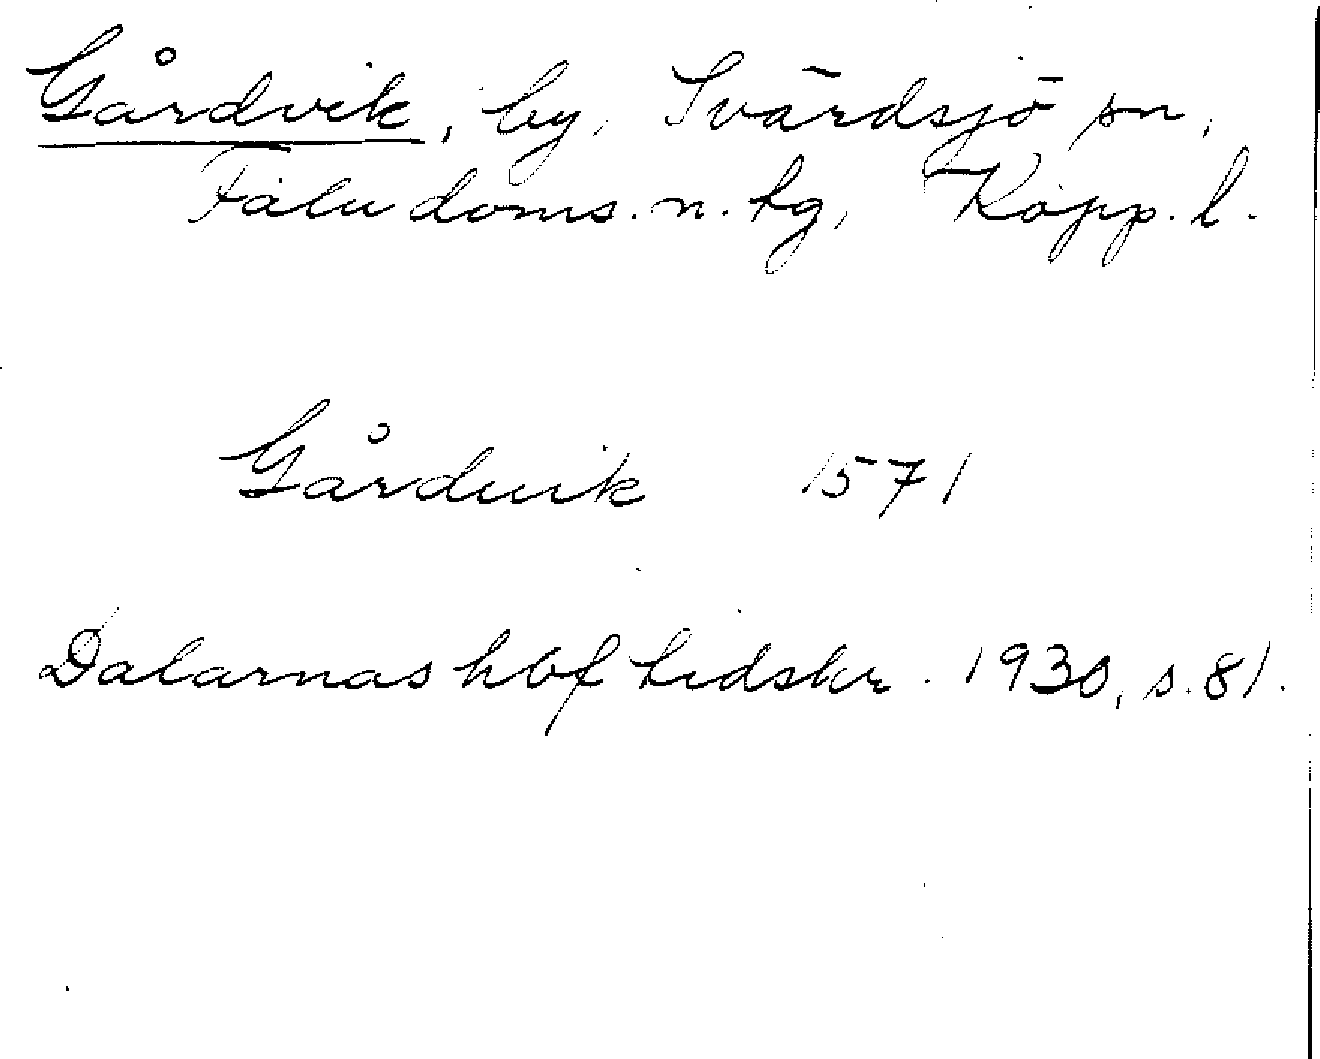 Gårdvik, by, Svärdsjö sn,
Falu doms. n. tg, Kopp. l.
Gårduik 1571
Dalarnas hbf tidskr. 1930, s. 81.